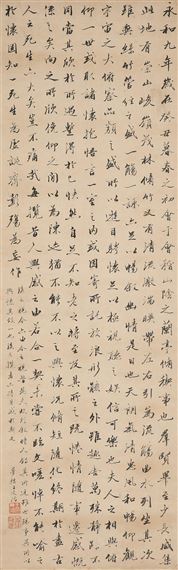 永和九年歲在癸丑暮春之初會于會稽山陰之蘭亭脩禊事也群賢畢至少長咸集
此地有崇山峻領茂林脩竹又有清流激湍暎帶左右引以為流觴曲水列坐其次
雖無絲竹管弦之盛一觴一詠亦足以暢敘幽情是日也天朗氣清惠風和暢仰觀
宇宙之大俯察品類之盛所以遊目騁懷足以極視聽之娛信可樂也夫人之相與俯
仰一世或取諸懷抱悟言一室之內或因寄所託放浪形骸之外雖趣舍萬殊靜躁不
同當其欣於所遇暫得於己快然自足不知老之將至及其所之既惓情隨事遷感慨
係之矣向之所欣俛仰之間以為陳迹猶不能不以之興懷況脩短隨化終期於盡古
人云死生亦大矣豈不痛哉每攬昔人興感之由若合一契未嘗不臨文嗟悼不能喻之
於懷固知一死生為虛誕齊彭殤為妄作
後之視今亦由今之視昔悲夫故列敘時人錄其所述雖世殊事異所以
興懷其致一也後之攬者亦將有感於斯文